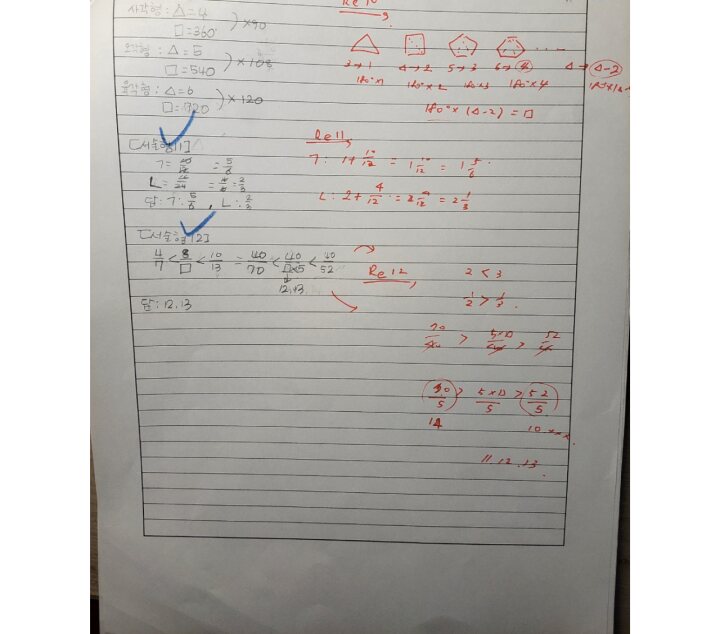 사각형 : △ = 4
□ = 360 ) × 90
오각형 : △ = 5
□ = 540 ) × 108
육각형 : △ = 6
□ = 720 ) × 120
[서술형11]
ㄱ = 10/12 = 5/6
답 : ㄱ : 5/6 , ㄴ : 2/3
[서술형12]
4/7 < 8/□ < 10/13 = 40/70 < 40/□×5 < 40/52
12, 13
답 : 12, 13
Re 10
3→1 4→2 5→3 6→4 △→△-2
180°×1 180°×2 180°×3 180°×4
180° × (△-2) = □
Re 11
ㄱ : 1 + 10/12 = 1 10/12 = 1 5/6
ㄴ : 2 + 4/12 = 2 4/12 = 2 1/3
Re 12
2 < 3
1/2 > 1/3
70/40 > 5×□/40 > 52/40
70/5 > 5×□/5 > 52/5
14 10
11, 12, 13